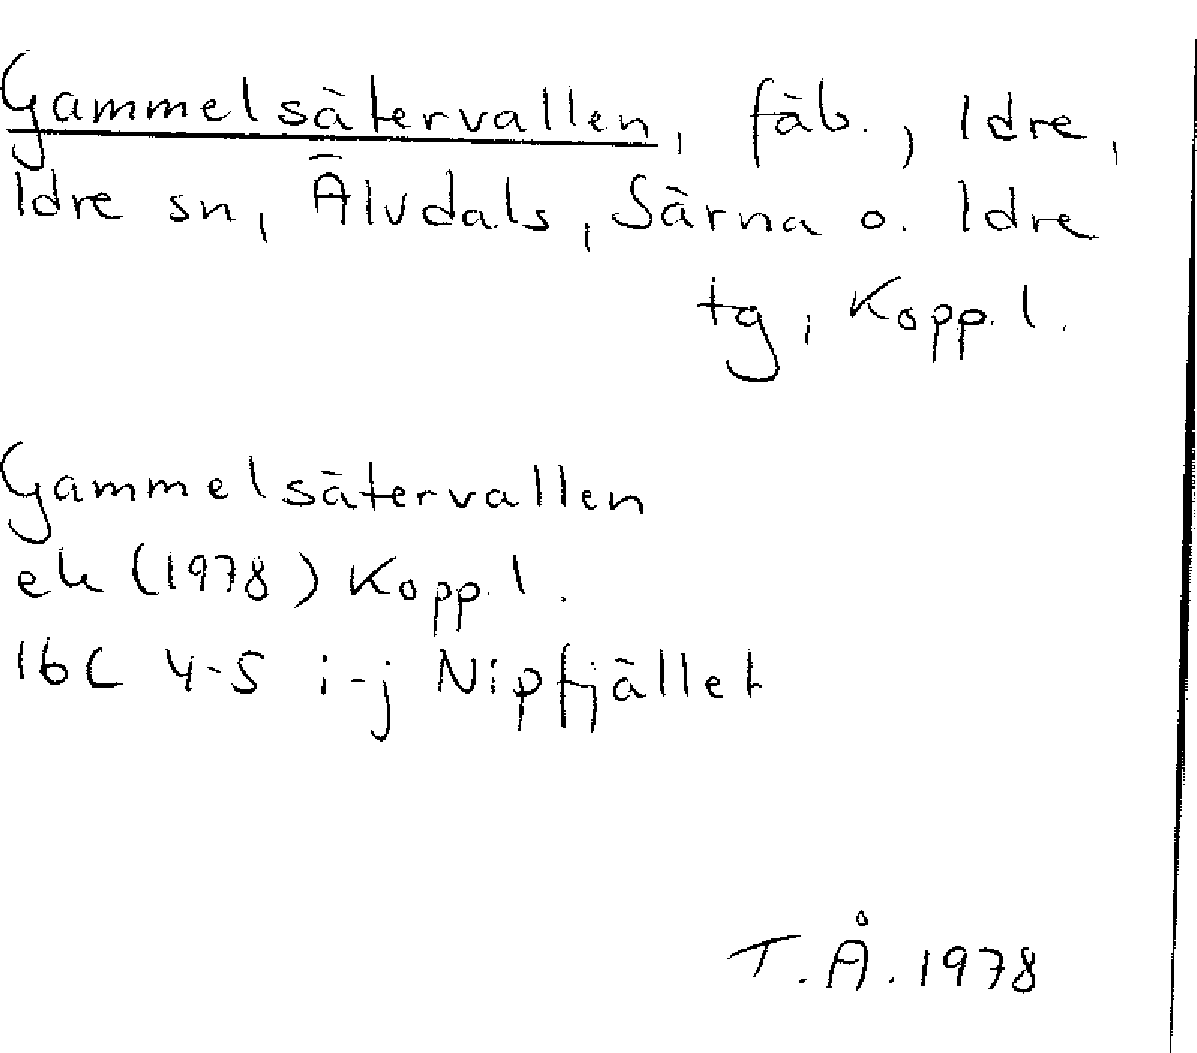 Gammelsätervallen, fäb., Idre,
Idre sn, Älvdals, Särna o. Idre
tg, Kopp. l.
Gammelsätervallen
ek (1978) Kopp. l.
16C 4-5 i-j Nipfjället
T.Å. 1978